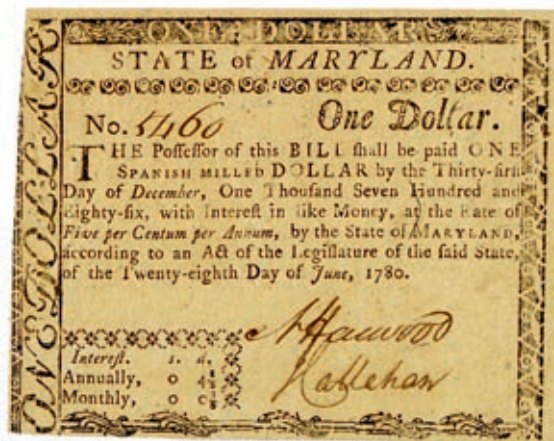 ONE DOLLAR
STATE of MARYLAND.
ONE DOLLAR
No. 5460 One Dollar.
THE Poſſeſſor of this BILL ſhall be paid ONE
SPANISH milled DOLLAR by the Thirty-firſt
Day of December, One Thouſand Seven Hundred and
Eighty-ſix, with Intereſt in like Money, at the Rate of
Five per Centum per Annum, by the State of MARYLAND,
according to an Act of the Legiſlature of the ſaid State,
of the Twenty-eighth Day of June, 1780.
Harwood
Callahan
Intereſt. s. d.
Annually, 0 4½
Monthly, 0 0